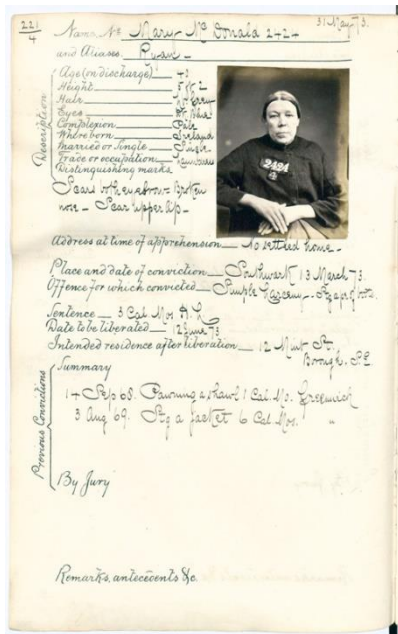 221
4
31 May 73.
Name, No Mary McDonald 2424
and Aliases. Ryan —
Description
Age (on discharge) 43
Height 5 ft 2
Hair
Eyes
Complexion Pale
Where born Ireland
Married or Single Single
Trade or occupation
Distinguishing marks
Scars both eyebrows Broken
nose — Scar upper lip —
2424
4
Address at time of apprehension — No settled home —
Place and date of conviction — Southwark 13 March 73.
Offence for which convicted — Simple Larceny — Stg a pr of boots.
Sentence — 3 Cal Mos H. L
Date to be liberated — 12 June 73
Intended residence after liberation — 12 Mint St.
Borough. S.E.
Previous Convictions
Summary
14 Sep 68. Pawning a shawl 1 Cal. Mo. Greenwich
3 Aug 69. Stg a Jacket 6 Cal. Mos. "
By Jury
Remarks, antecedents &c.